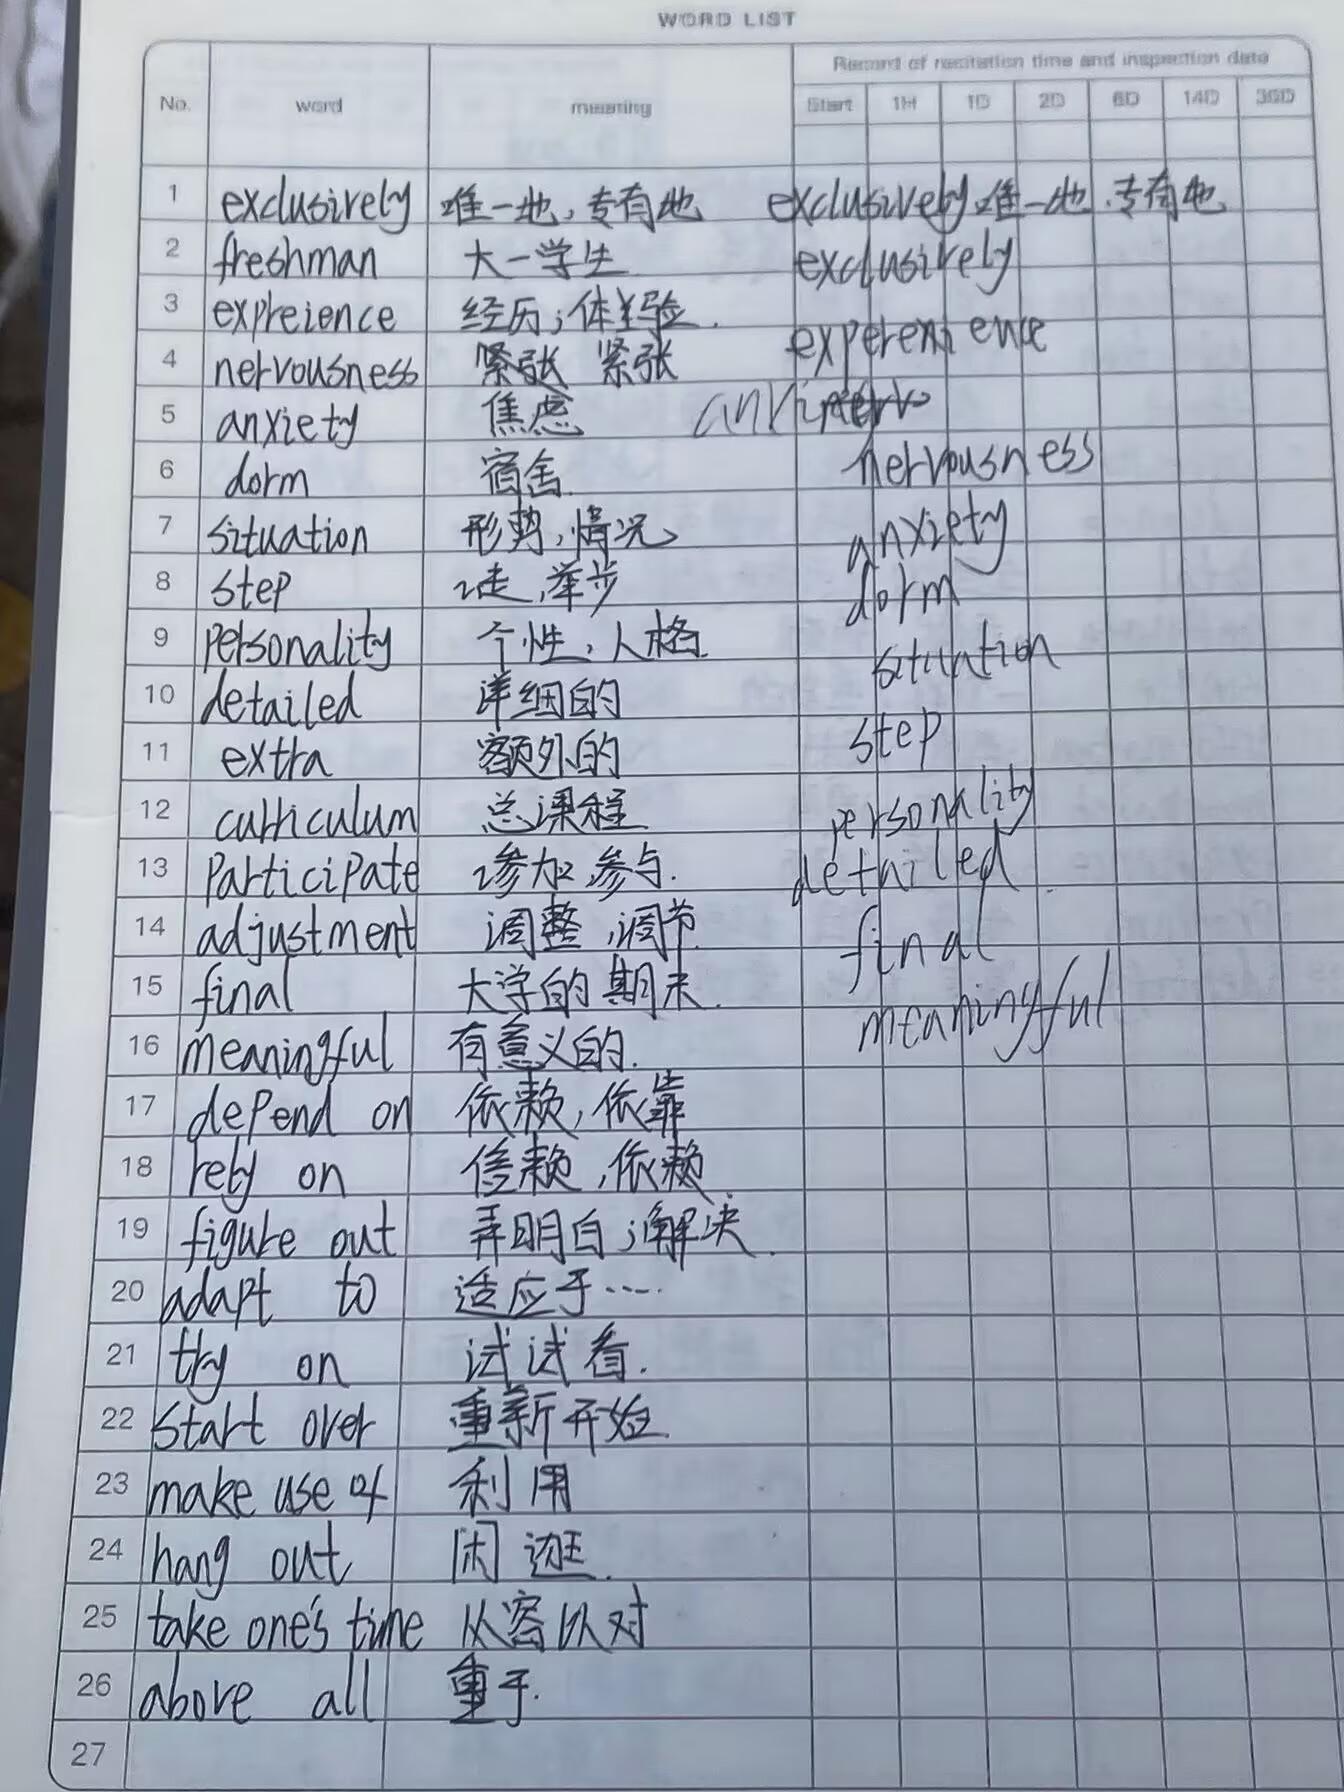 WORD LIST
No. word meaning Record of recitation time and inspection date
Start 1H 1D 2D 6D 14D 30D
1 exclusively 唯一地，专有地 exclusively 唯一地，专有地
2 freshman 大一学生 exclusively
3 expreience 经历；体验. experexience
4 nervousness 紧张 紧张
5 anxiety 焦虑
6 dorm 宿舍. nervousness
7 situation 形势，情况 anxiety
8 step 走，举步 dorm
9 personality 个性，人格. situation
10 detailed 详细的
11 extra 额外的 step
12 curriculum 总课程 personality
13 participate 参加，参与. detailed
14 adjustment 调整，调节 final
15 final 大学的期末.
16 meaningful 有意义的. meaningful
17 depend on 依赖，依靠
18 rely on 信赖，依赖
19 figure out 弄明白；解决.
20 adapt to 适应于……
21 try on 试试看.
22 start over 重新开始.
23 make use of 利用
24 hang out 闲逛.
25 take one's time 从容以对
26 above all 重于.
27